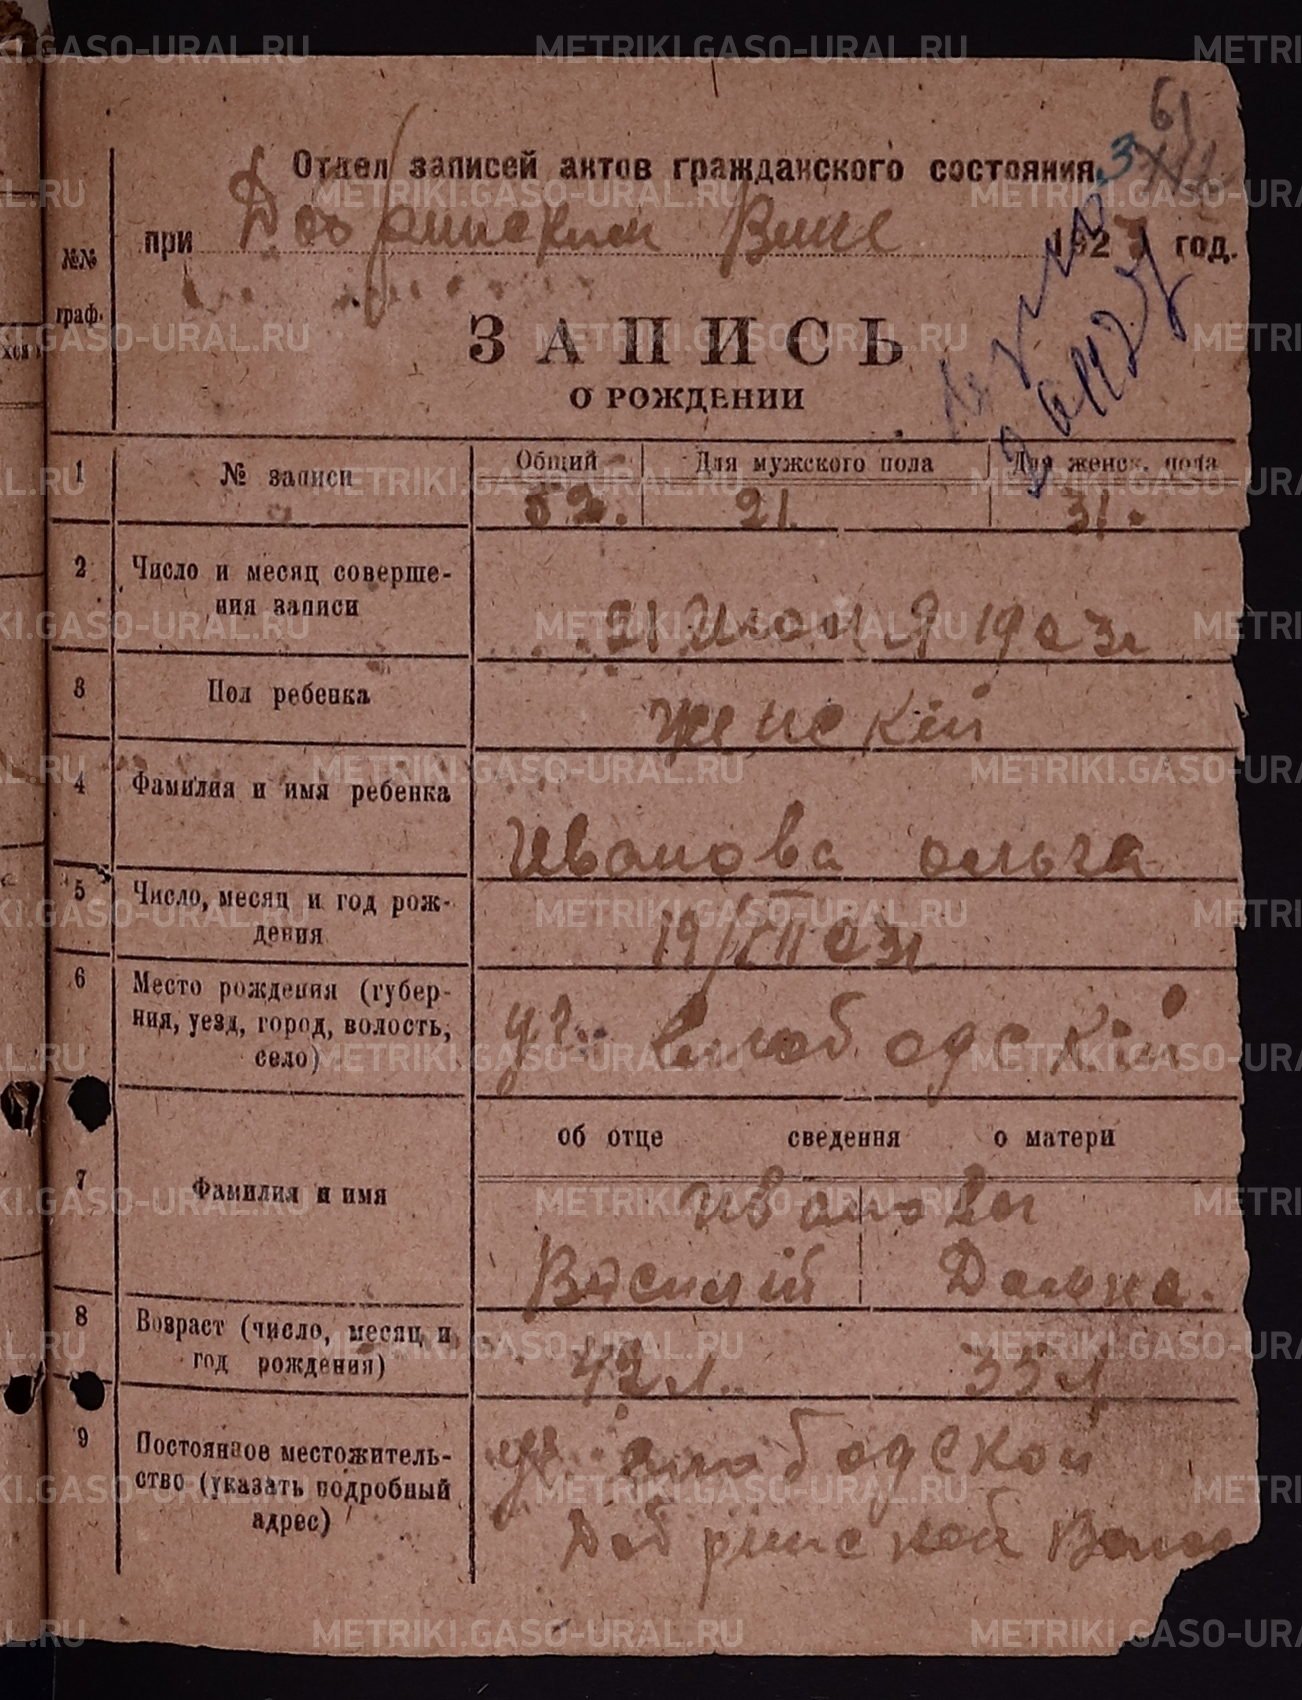 61
Отдел записей актов гражданского состояния
при Добринским Вике 1923 год.
№№ граф.
ЗАПИСЬ
О РОЖДЕНИИ
1 № записи Общий Для мужского пола Для женск. пола
52. 21. 31.
2 Число и месяц соверше-
ния записи
21 Июля 1923г
3 Пол ребенка Женскій
4 Фамилия и имя ребенка
Иванова ольга
5 Число, месяц и год рож-
дения
19/VII 23г
6 Место рождения (губер-
ния, уезд, город, волость,
село)
уч. Слободскій
об отце сведения о матери
7 Фамилия и имя
Ивановы
Василій
8 Возраст (число, месяц и
год рождения)
42 л. 35 л
9 Постоянное местожитель-
ство (указать подробный
адрес)
уч. слободской
Добринской
METRIKI.GASO-URAL.RU